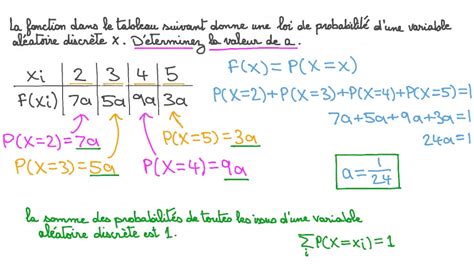 La fonction dans le tableau suivant donne une loi de probabilité d'une variable
aléatoire discrète X. Déterminez la valeur de a.
xi | 2 | 3 | 4 | 5
f(xi) | 7a | 5a | 9a | 3a
F(x) = P(X=x)
P(X=2)+P(X=3)+P(X=4)+P(X=5)=1
7a+5a+9a+3a=1
24a=1
a = 1/24
P(X=2)=7a
P(X=5)=3a
P(X=3)=5a
P(X=4)=9a
la somme des probabilités de toutes les issus d'une variable
aléatoire discrète est 1.
∑i P(X=xi)=1